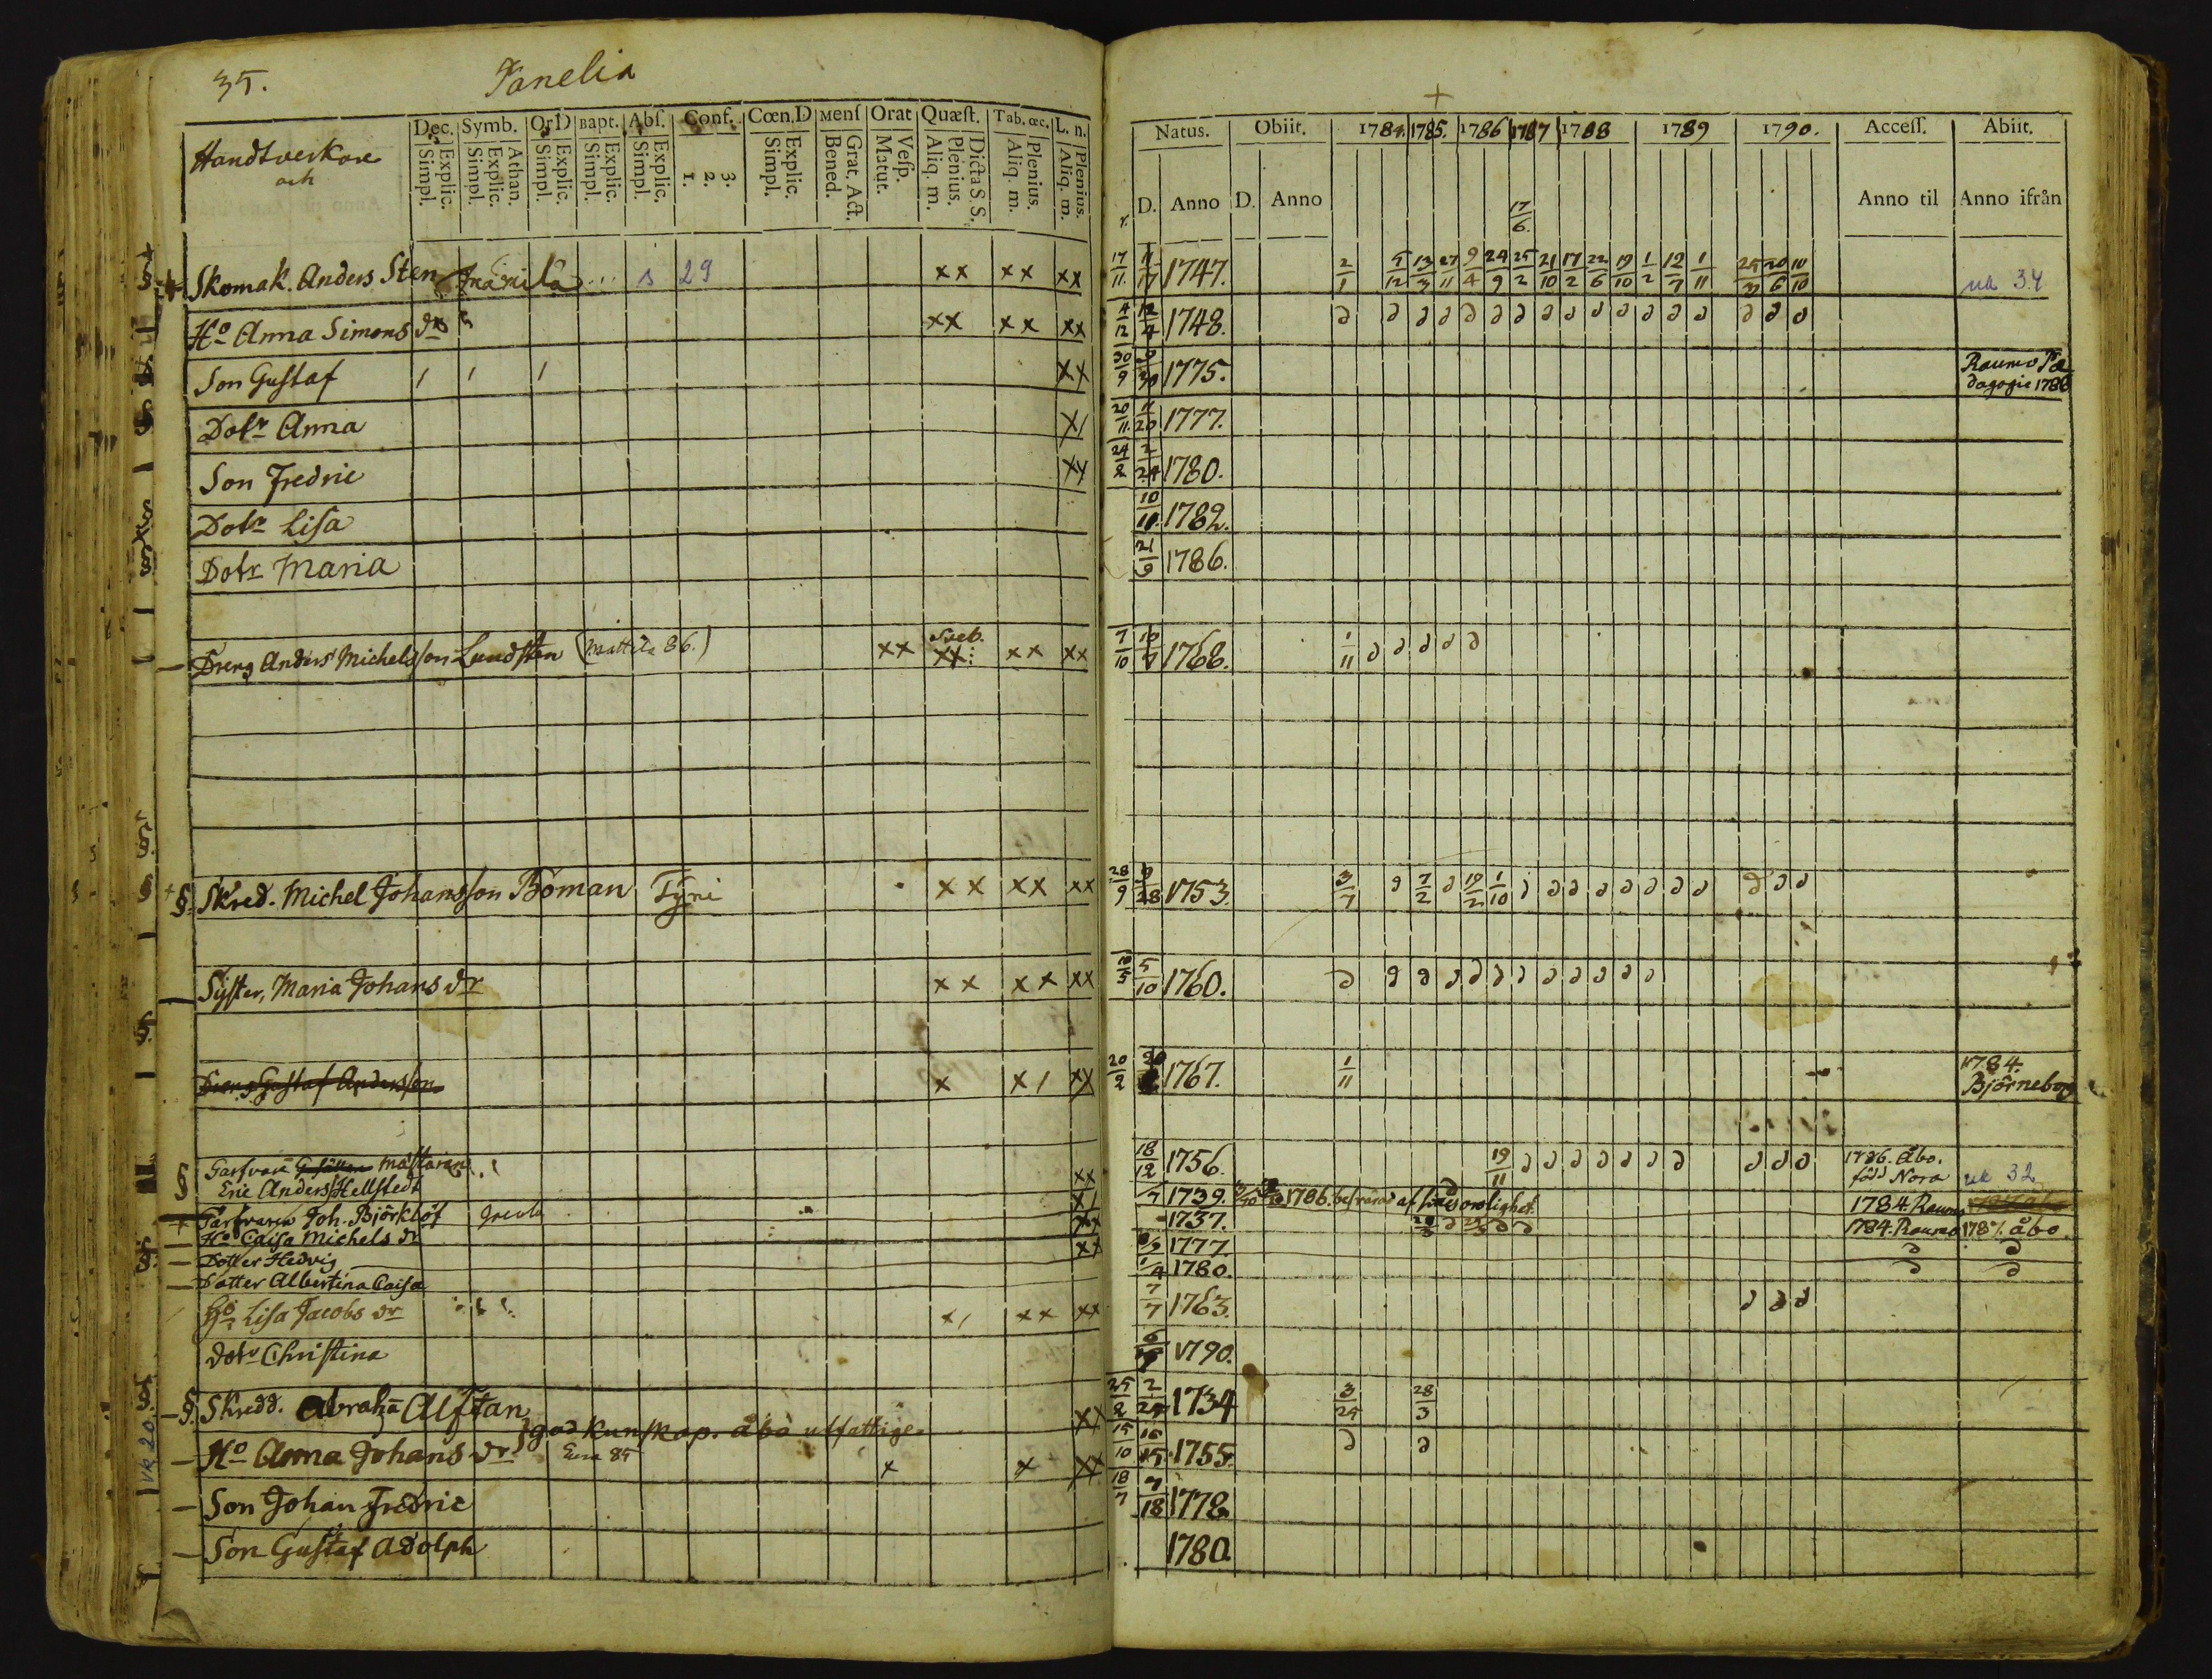 35.
Panelia
Handtverkare
och
Dec. Symb. Or D Bapt. Abs. Conf. Cœn. D Mens Orat Quæst. Tab. œc. L. n.
Explic. Simpl. Athan. Explic. Simpl. Explic. Simpl. Explic. Simpl. Explic. Simpl. 3. 2. 1. Explic. Simpl. Grat. Act. Bened. Vesp. Matut. Dicta S S. Plenius. Aliq. m. Plenius. Aliq. m. Plenius. Aliq. m.
Skomak. Anders Sten Franila s 29 xx xx xx
Ho Anna Simons dr xx xx xx
Son Gustaf xx
Dotr Anna x/
Son Fredric xx
Dotr Lisa
Dotr Maria
Sveb.
Dreng Anders Michelsson Lundsten (Mattila 86.) xx xx xx xx
§ Skred. Michel Johansson Boman Tyni xx xx xx
Syster, Maria Johans dr xx xx xx
Dreng Gustaf Andersson x x/ xx
§ Garfvare mästaren
Eric Anders Hellstedt xx
Garfvaren Joh. Björklöf x/
Ho Caisa Michels dr xx
Dotter Hedvig xx
Dotter Albertina Caisa
Ho Lisa Jacobs dr x/ xx xx
dotr Christina
§. Skredd. Abrah: Alftan xx
god kunskap. åbo utfattige
Ho Anna Johans dr Eura 85 x x xx
Son Johan Fredric
Son Gustaf Adolph
vk 20
+
Natus. Obiit. 1784. 1785. 1786 1787 1788 1789 1790. Access. Abiit.
D. Anno D. Anno Anno til Anno ifrån
17/6.
17/11. 11/17 1747. 2/1 5/12 13/3 27/11 9/4 24/9 25/2 21/10 17/2 22/6 19/10 1/2 12/7 1/11 25/3 20/6 10/10 uk 34
4/12 12/4 1748.
30/9 9/30 1775. Raumo Pæ
dagogie 1786
20/11. 11/20 1777.
24/2 2/24 1780.
10/11. 1782.
21/9 1786.
7/10 10/7 1768. 1/11
28/9 9/28 1753. 3/7 7/2 19/2 1/10
10/5 5/10 1760.
20/2 1767. 1/11 1784.
Björneborg
18/12 1756. 19/11 1786. Åbo.
född Nora uk 32
1739. 1786. 1784. Raumo
1737. 1784. Raumo 1787. åbo
1777.
1/4 1780.
7/7 1763.
1790.
25/2 2/25 1734 3/25 28/3
15/10 10/15 1755.
18/7 7/18 1778
1780